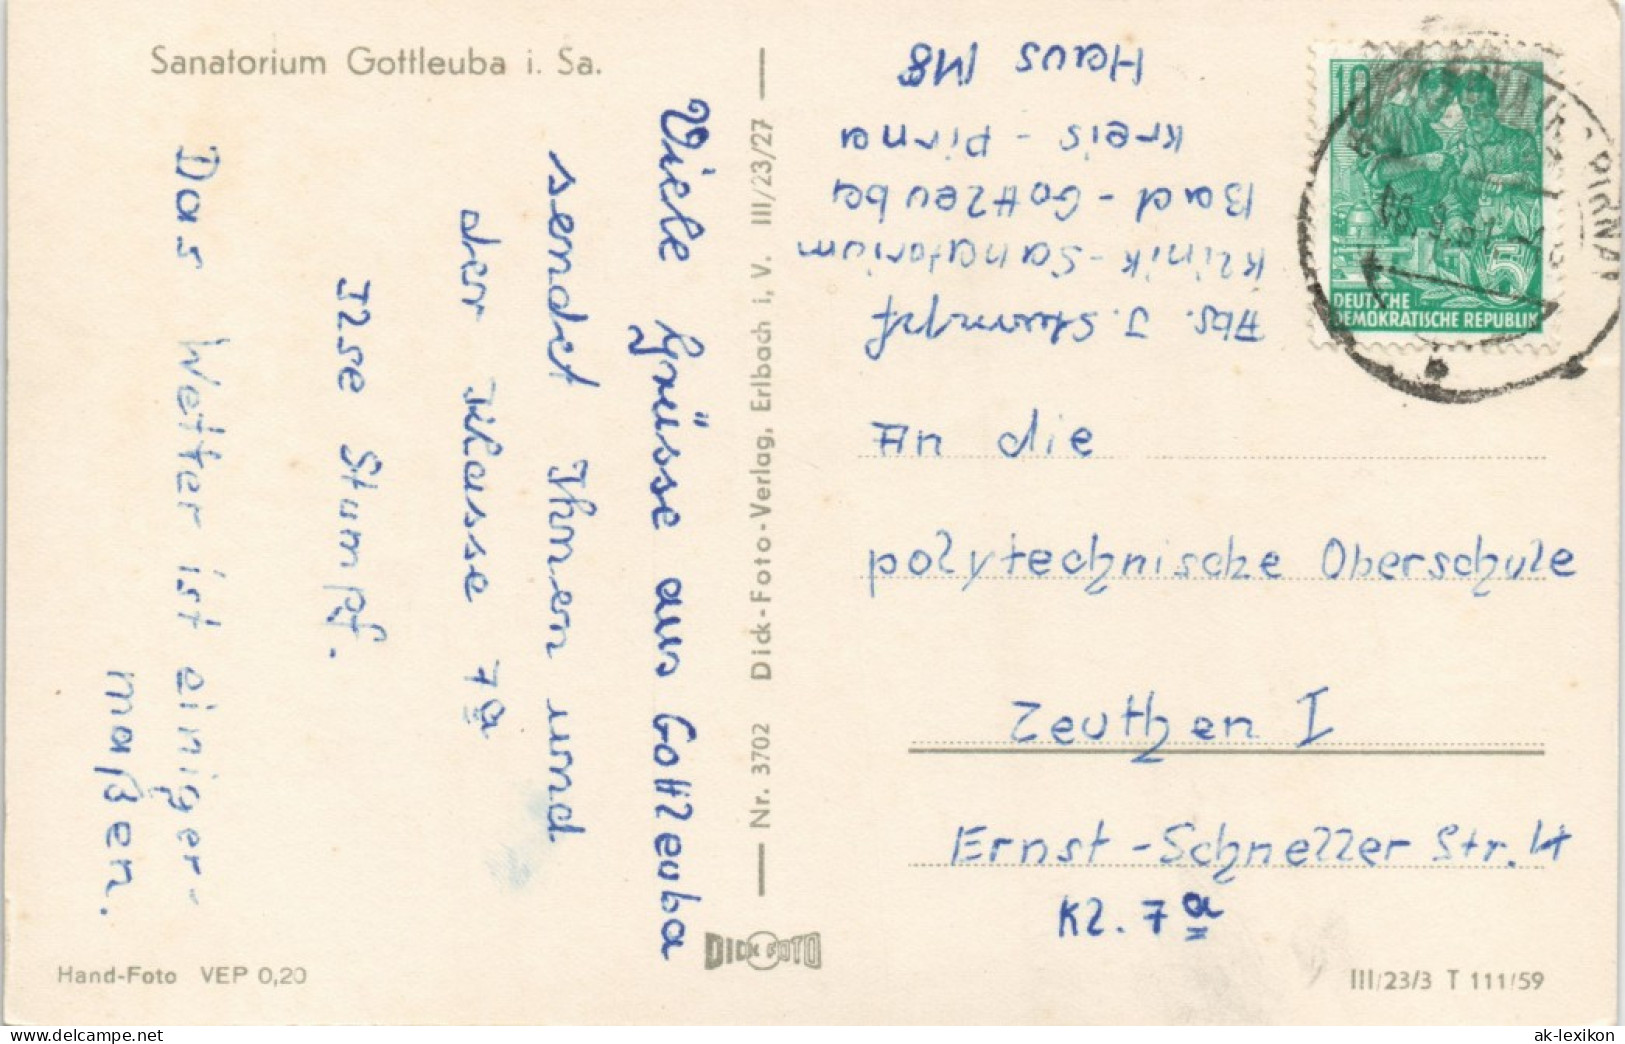 Sanatorium Gottleuba i. Sa.
Viele Grüsse aus Gottleuba
sendet Ihnen und
der Klasse 7a
Ilse Stumpf.
Das Wetter ist einiger-
maßen.
Hand-Foto VEP 0,20
Nr. 3702 Dick-Foto-Verlag, Erlbach i. V. III/23/27
DICK FOTO
Abs. I. Stumpf
Klinik-Sanatorium
Bad-Gottleuba
Kreis-Pirna
Haus M8
10
5
DEUTSCHE
DEMOKRATISCHE REPUBLIK
PIRNA
An die
polytechnische Oberschule
Zeuthen I
Ernst-Schneller Str. 14
Kl. 7a
III/23/3 T 111/59
delcampe.net
ak-lexikon